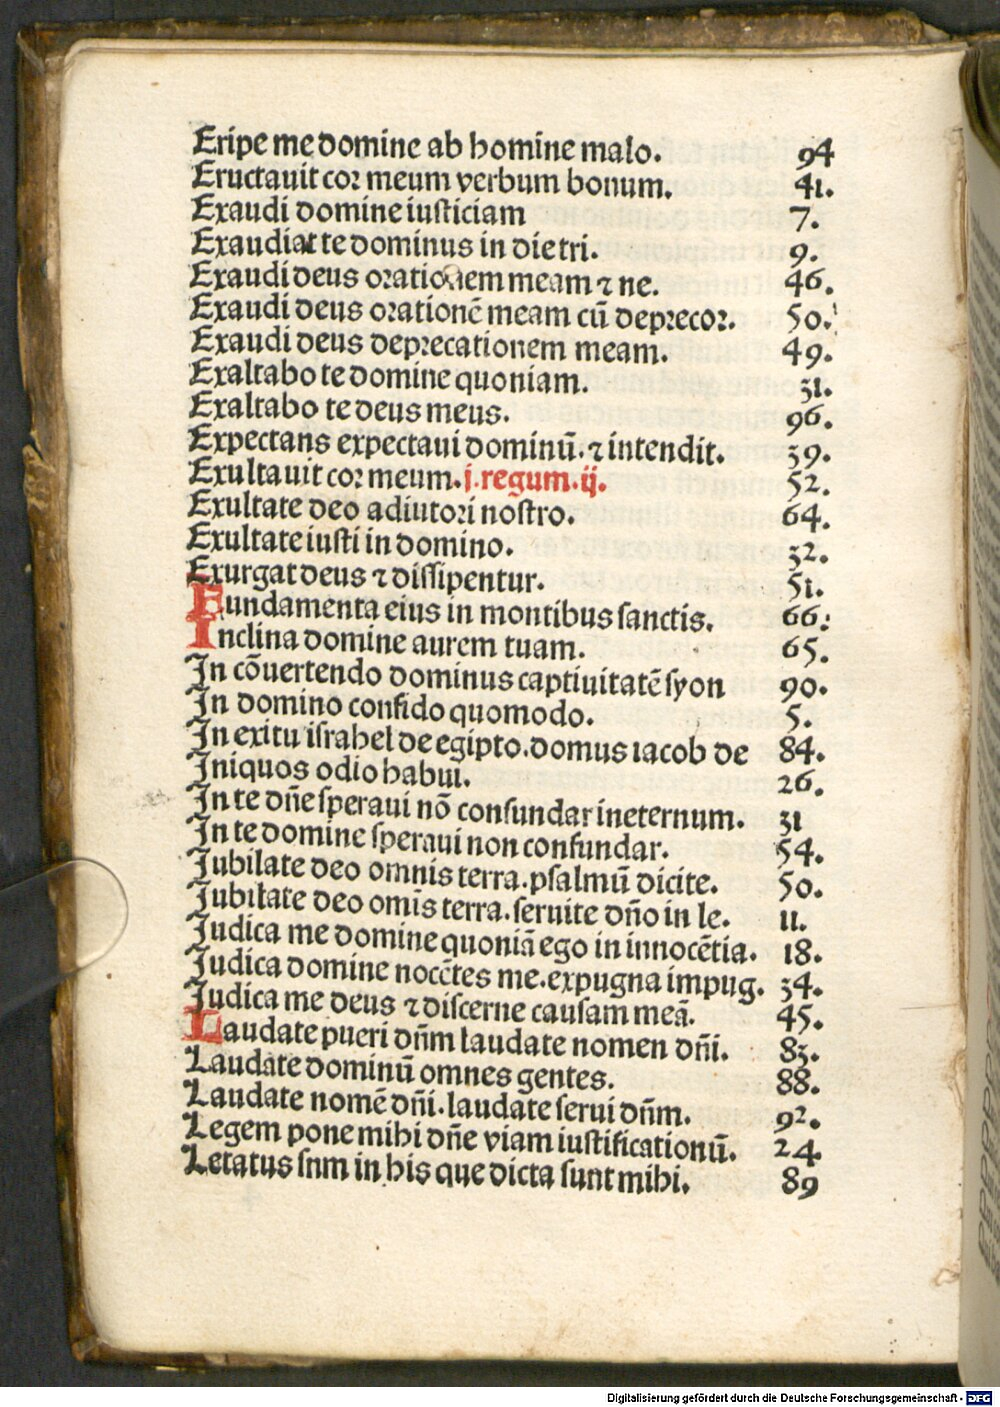 Eripe me domine ab homine malo. 94
Eructauit coꝛ meum verbum bonum. 41.
Exaudi domine iusticiam 7.
Exaudiat te dominus in die tri. 9.
Exaudi deus oꝛationem meam ⁊ ne. 46.
Exaudi deus oꝛationē meam cū depꝛecoꝛ. 50.
Exaudi deus depꝛecationem meam. 49.
Exaltabo te domine quoniam. 31.
Exaltabo te deus meus. 96.
Expectans expectaui dominū. ⁊ intendit. 39.
Exultauit coꝛ meum. j. regum. ij. 52.
Exultate deo adiutoꝛi nostro. 64.
Exultate iusti in domino. 32.
Exurgat deus ⁊ dissipentur. 51.
Fundamenta eius in montibus sanctis. 66:
Inclina domine aurem tuam. 65.
In cōuertendo dominus captiuitatē syon 90.
In domino confido quomodo. 5.
In exitu israhel de egipto. domus iacob de 84.
Iniquos odio habui. 26.
In te dñe speraui nō confundar ineternum. 31
In te domine speraui non confundar. 54.
Jubilate deo omnis terra. psalmū dicite. 50.
Jubilate deo omīs terra. seruite dño in le. 11.
Judica me domine quoniā ego in innocētia. 18.
Judica domine nocētes me. expugna impug. 34.
Judica me deus ⁊ discerne causam meā. 45.
Laudate pueri dñm laudate nomen dñi. 83.
Laudate dominū omnes gentes. 88.
Laudate nomē dñi. laudate serui dñm. 92.
Legem pone mihi dñe viam iustificationū. 24.
Letatus snm in his que dicta sunt mihi. 89
Digitalisierung gefördert durch die Deutsche Forschungsgemeinschaft - DFG